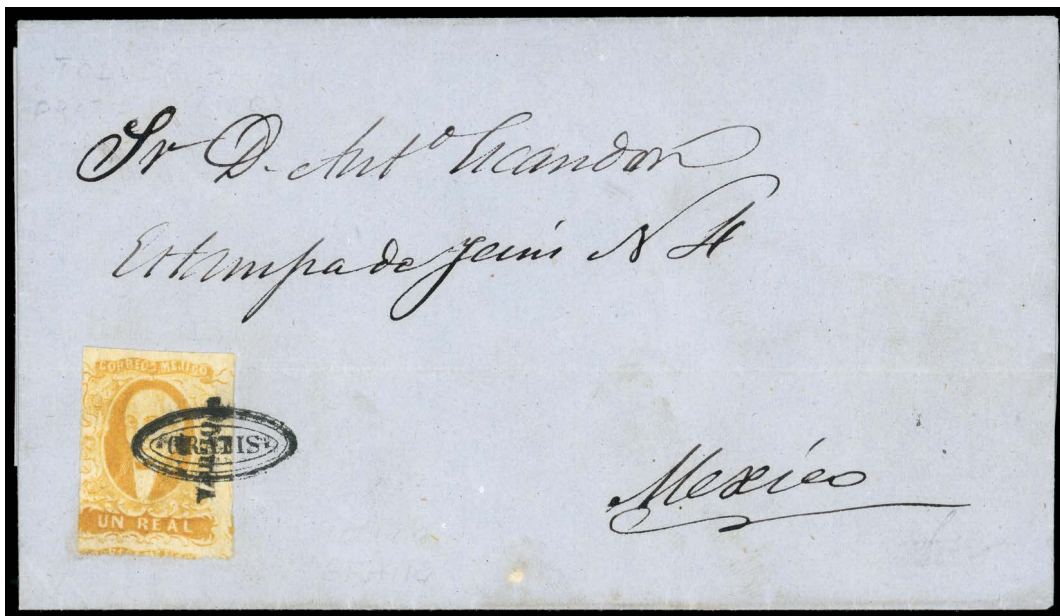 Sr D. Anto Escandon
Estampa de Jesús N 4
CORREOS MEJICO
GRATIS
UN REAL
Mexico